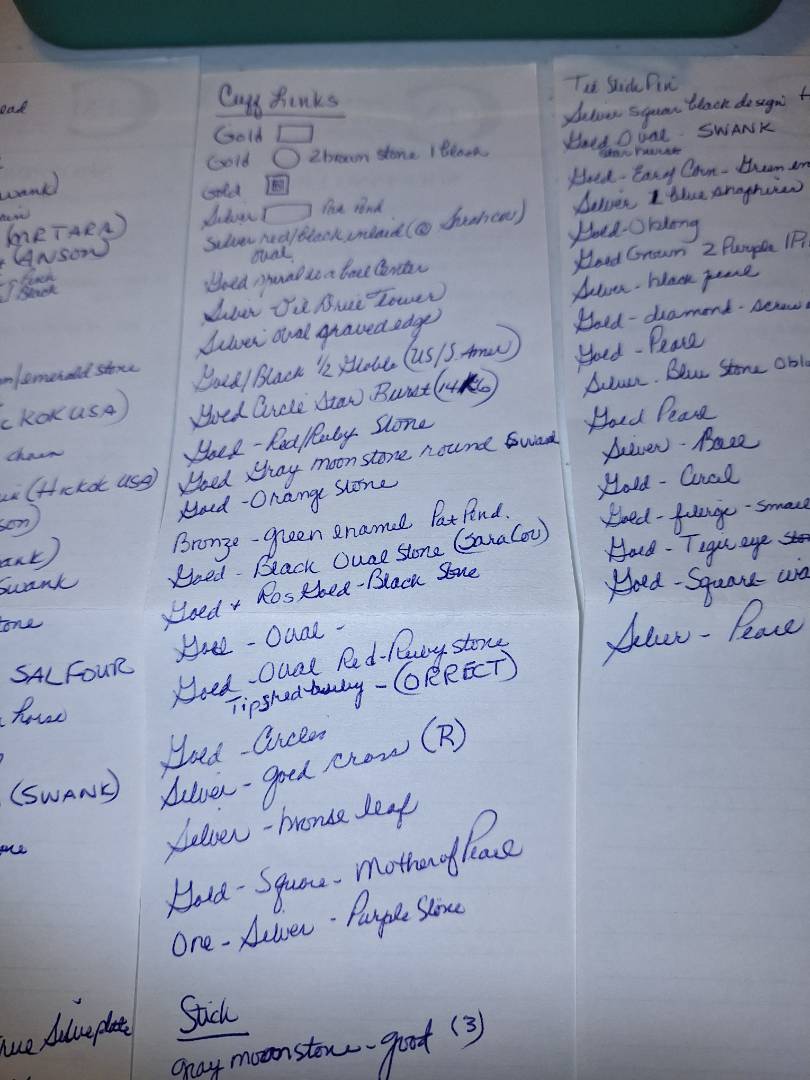 ead
wank)
ain
(MRTARA)
(ANSON)
Black
/emerald stone
CKOK USA)
chain
(Hickok USA)
son)
ank)
Swank
tone
SALFOUR
horse
(SWANK)
Silverplate
Cuff Links
Gold
Gold 2 brown stone 1 black
Gold
Silver Pat Pend
Silver red/black inlaid (@ Sarah Cov)
oval
Gold spiral center
Silver Tower
Silver oval graved edge
Gold/Black 1/2 Globe (US/S. Amer)
Gold Circle Star Burst (14K)
Gold - Red/Ruby Stone
Gold Gray moonstone round Swank
Gold - Orange Stone
Bronze - green enamel Pat Pend.
Gold - Black Oval Stone (Sara Cov)
Gold + Ros Gold - Black Stone
Gold - Oval -
Gold - Oval Red-Ruby stone
- (ORRECT)
Gold - Circles
Silver - gold cross (R)
Silver - bronse leaf
Gold - Square - Mother of Pearl
One - Silver - Purple Stone
Stick
gray moonstone - good (3)
Tie Stick Pin
Silver squar black design
Gold Oval - SWANK
star burst
Gold - Ear of Corn - Green en
Silver 1 blue
Gold - Oblong
Gold Crown 2 Purple 1 Pi
Silver - black pearl
Gold - diamond - screw
Gold - Pearl
Silver - Blue Stone Oblo
Gold Pearl
Silver - Ball
Gold - Circil
Gold - - small
Gold - Tiger eye
Gold - Square
Silver - Pearl